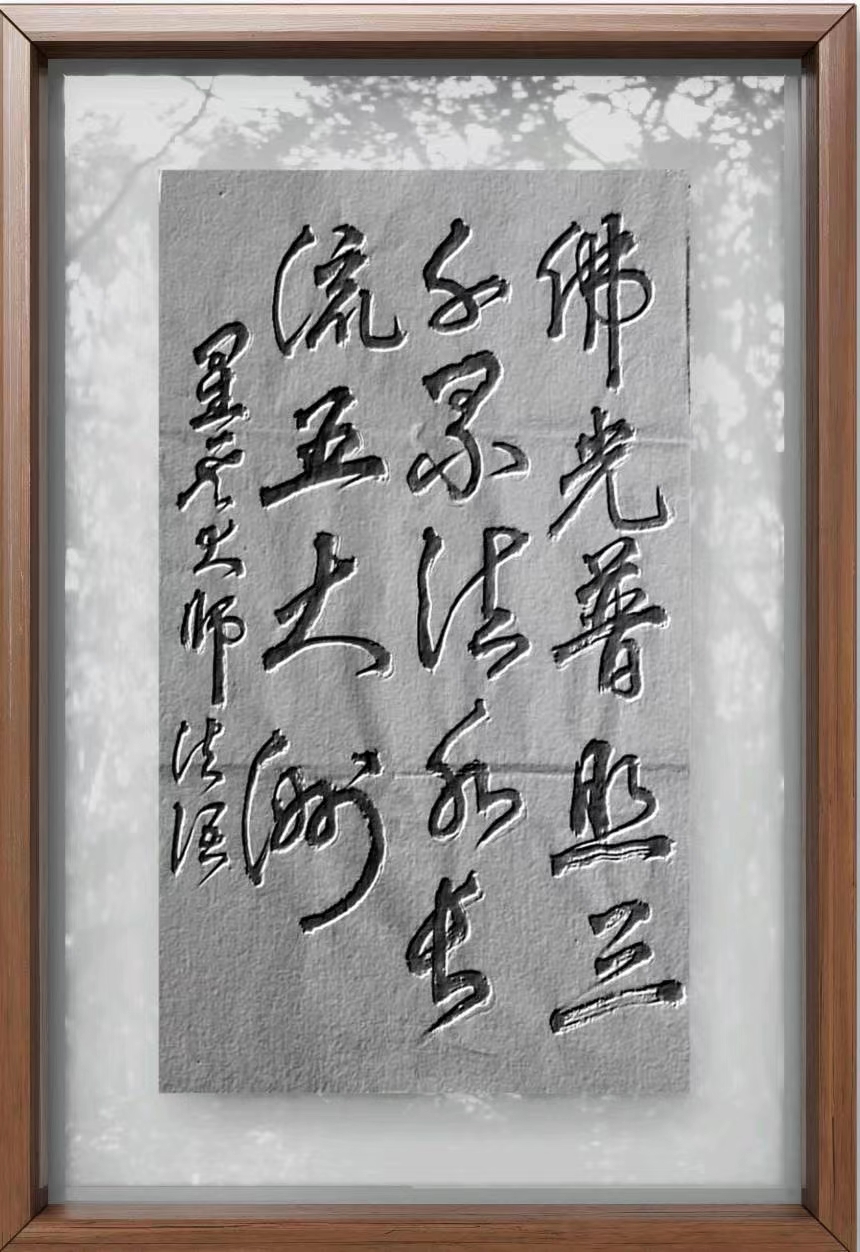 佛光普照三
千界法水长
流五大洲
星云大师法语